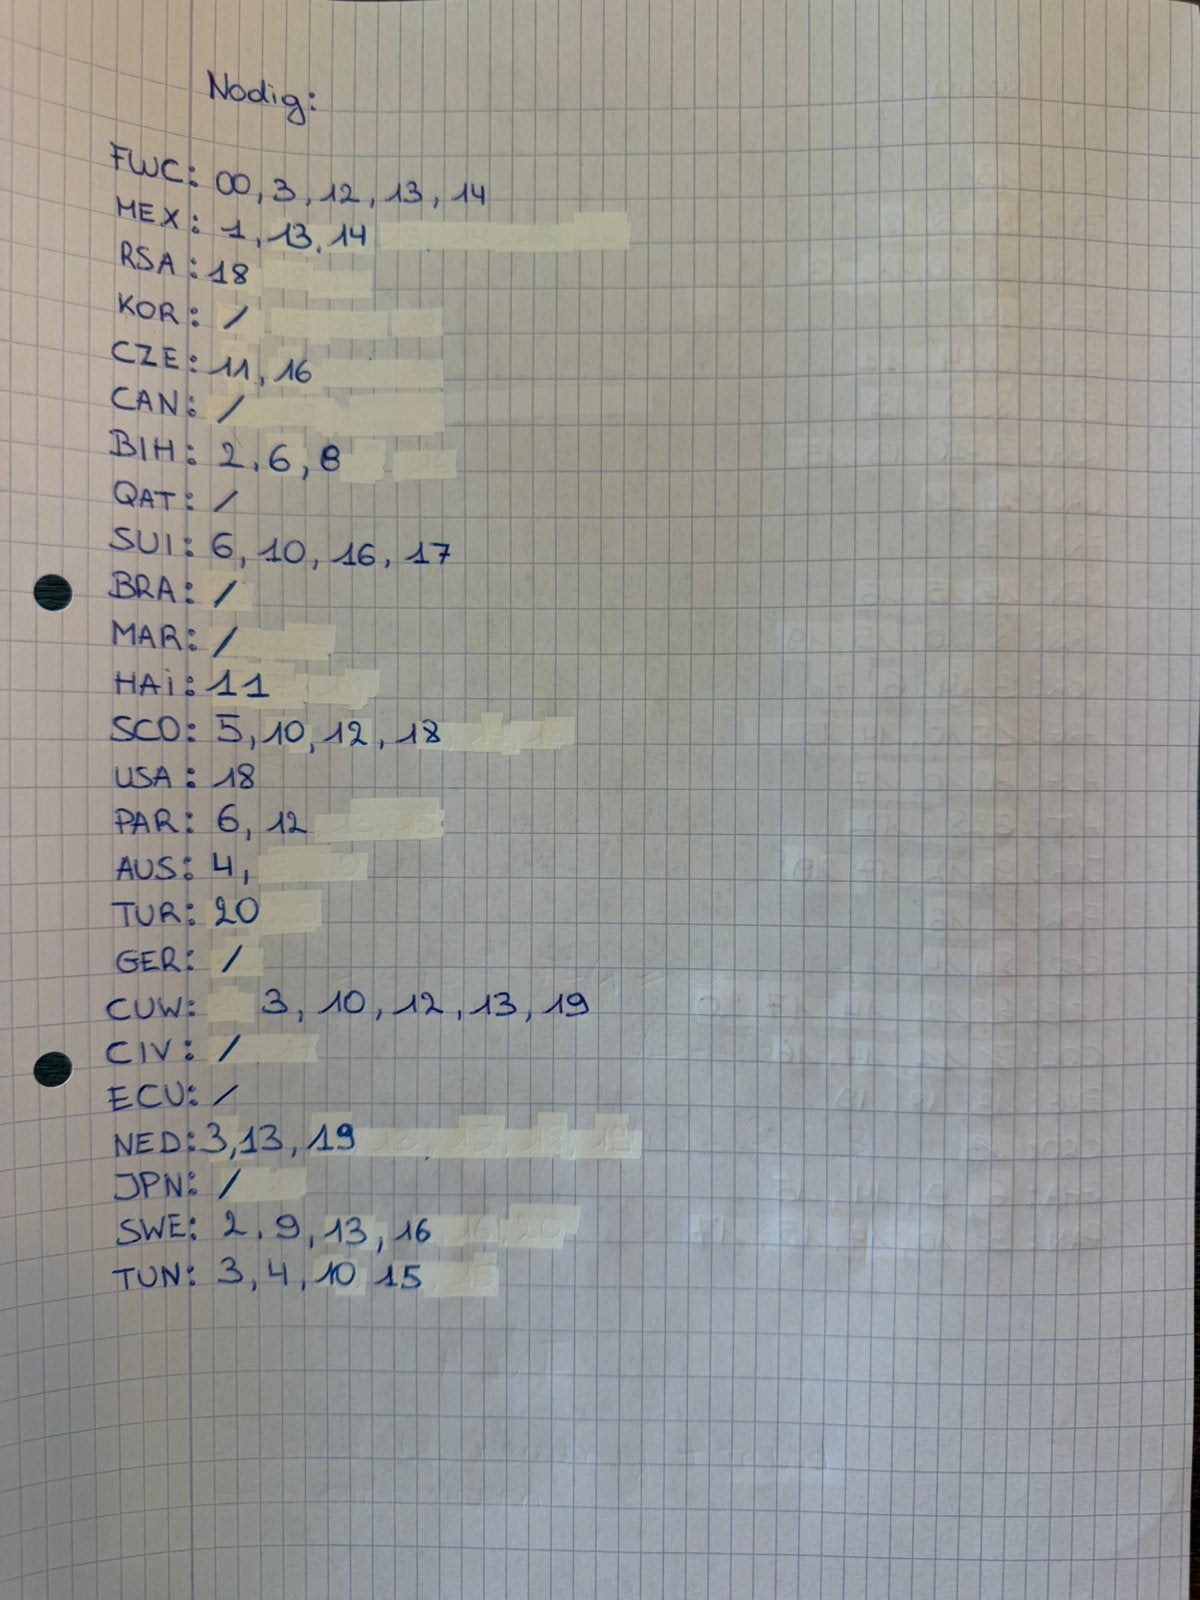 Nodig:
FWC: 00, 3, 12, 13, 14
MEX: 1, 13, 14
RSA: 18
KOR: /
CZE: 11, 16
CAN: /
BIH: 2, 6, 8
QAT: /
SUI: 6, 10, 16, 17
BRA: /
MAR: /
HAi: 11
SCO: 5, 10, 12, 18
USA: 18
PAR: 6, 12
AUS: 4,
TUR: 20
GER: /
CUW: 3, 10, 12, 13, 19
CIV: /
ECU: /
NED: 3, 13, 19
JPN: /
SWE: 2, 9, 13, 16
TUN: 3, 4, 10 15